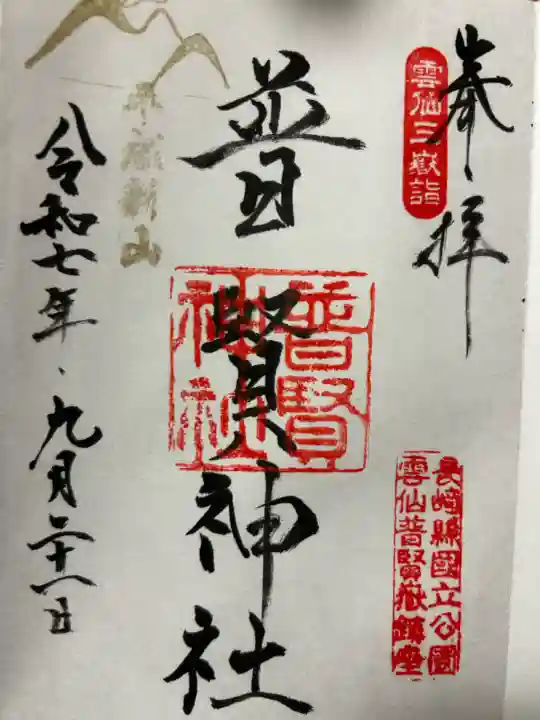 奉拝
雲仙三嶽詣
長崎縣國立公園
雲仙普賢嶽鎮座
普賢神社
普賢
神社
平成新山
令和七年、九月二十八日